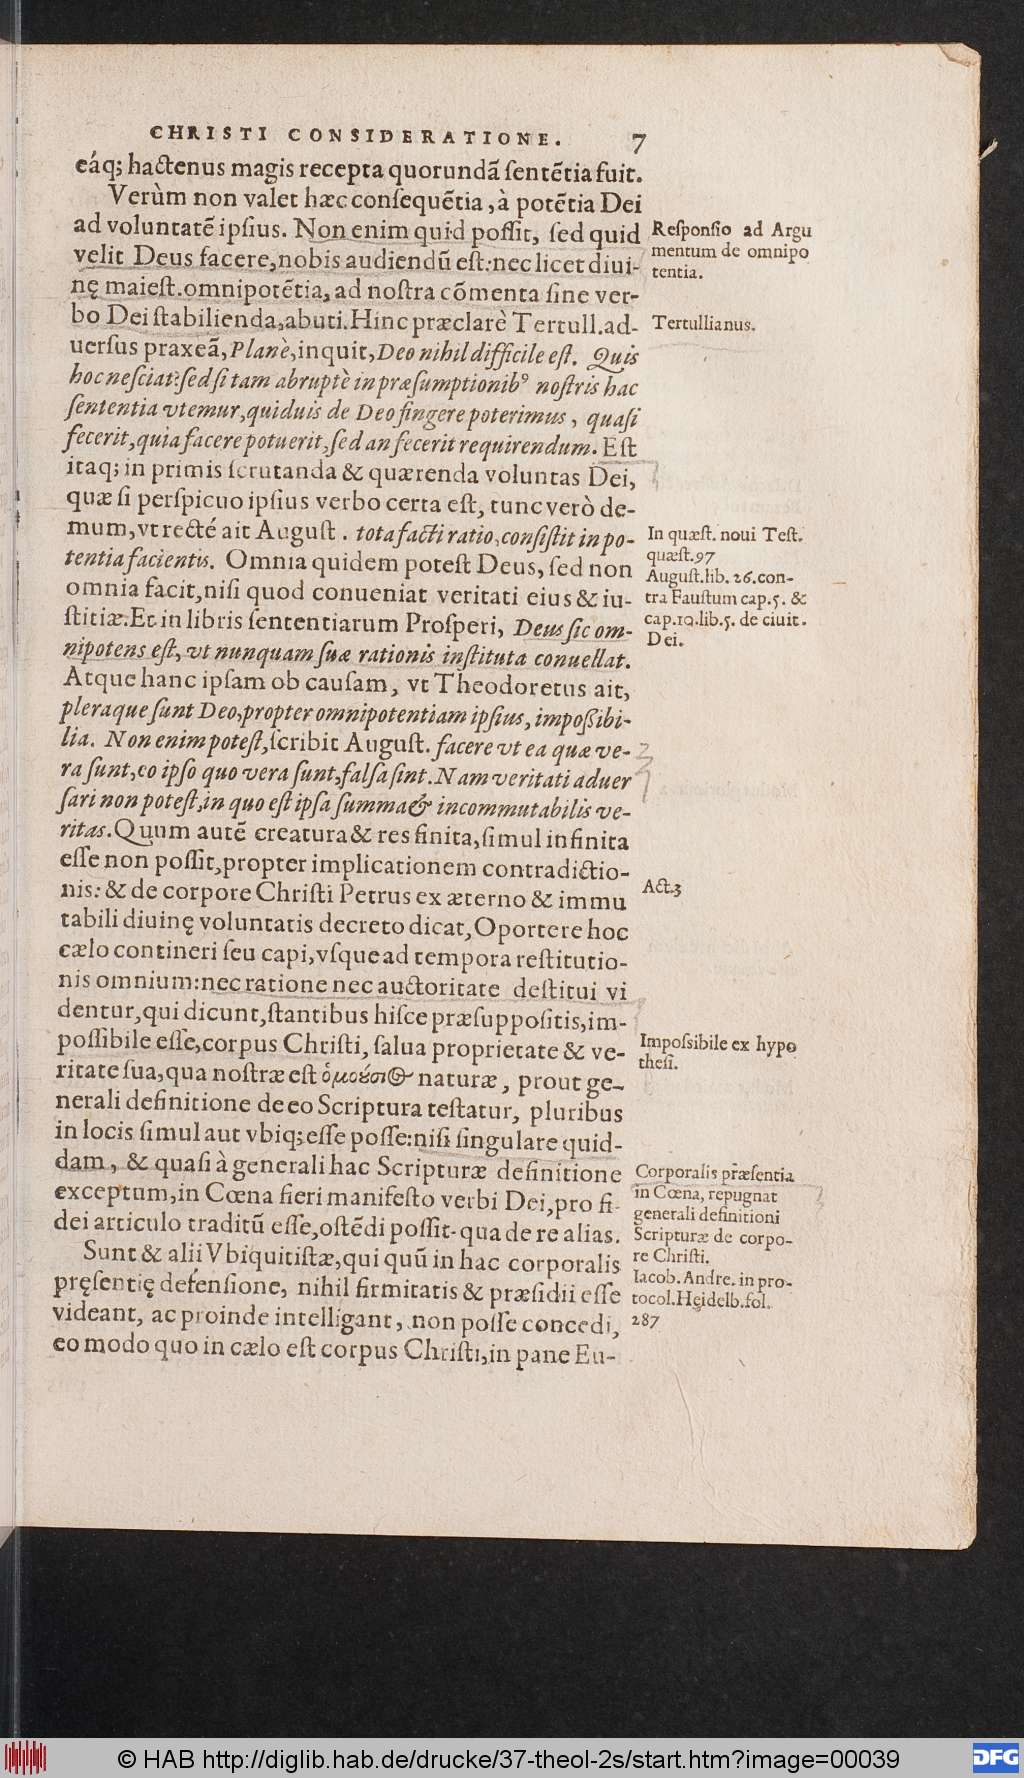 CHRISTI CONSIDERATIONE. 7
eáq; hactenus magis recepta quorundã ſentẽtia fuit.
Verùm non valet hæc conſequẽtia, à potẽtia Dei
ad voluntatẽ ipſius. Non enim quid poſſit, ſed quid
velit Deus facere, nobis audiendũ eſt: nec licet diui-
nę maieſt. omnipotẽtia, ad noſtra cõmenta ſine ver-
bo Dei ſtabilienda, abuti. Hinc præclarè Tertull. ad-
uerſus praxeã, Planè, inquit, Deo nihil difficile eſt. Quis
hoc neſciat? ſed ſi tam abruptè in præſumptionibꝰ noſtris hac
ſententia vtemur, quiduis de Deo fingere poterimus, quaſi
fecerit, quia facere potuerit, ſed an fecerit requirendum. Eſt
itaq; in primis ſcrutanda & quærenda voluntas Dei,
quæ ſi perſpicuo ipſius verbo certa eſt, tunc verò de-
mum, vt recté ait Auguſt. tota facti ratio, conſiſtit in po-
tentia facientis. Omnia quidem poteſt Deus, ſed non
omnia facit, niſi quod conueniat veritati eius & iu-
ſtitiæ. Et in libris ſententiarum Proſperi, Deus ſic om-
nipotens eſt, vt nunquam ſuæ rationis inſtituta conuellat.
Atque hanc ipſam ob cauſam, vt Theodoretus ait,
pleraque ſunt Deo, propter omnipotentiam ipſius, impoßibi-
lia. Non enim poteſt, ſcribit Auguſt. facere vt ea quæ ve-
ra ſunt, eo ipſo quo vera ſunt, falſa ſint. Nam veritati aduer
ſari non poteſt, in quo eſt ipſa ſumma & incommutabilis ve-
ritas. Quum autẽ creatura & res finita, ſimul infinita
eſſe non poſſit, propter implicationem contradictio-
nis: & de corpore Chriſti Petrus ex æterno & immu
tabili diuinę voluntatis decreto dicat, Oportere hoc
cælo contineri ſeu capi, vſque ad tempora reſtitutio-
nis omnium: nec ratione nec auctoritate deſtitui vi
dentur, qui dicunt, ſtantibus hiſce præſuppoſitis, im-
poſſibile eſſe, corpus Chriſti, ſalua proprietate & ve-
ritate ſua, qua noſtræ eſt ὁμούσιος naturæ, prout ge-
nerali definitione de eo Scriptura teſtatur, pluribus
in locis ſimul aut vbiq; eſſe poſſe: niſi ſingulare quid-
dam, & quaſi à generali hac Scripturæ definitione
exceptum, in Cœna fieri manifeſto verbi Dei, pro fi-
dei articulo traditũ eſſe, oſtẽdi poſſit. qua de re alias.
Sunt & alii Vbiquitiſtæ, qui quũ in hac corporalis
pręſentię defenſione, nihil firmitatis & præſidii eſſe
videant, ac proinde intelligant, non poſſe concedi,
eo modo quo in cælo eſt corpus Chriſti, in pane Eu-
Reſponſio ad Argu
mentum de omnipo
tentia.
Tertullianus.
In quæſt. noui Teſt.
quæſt. 97
Auguſt. lib. 26. con-
tra Fauſtum cap. 5. &
cap. 10. lib. 5. de ciuit.
Dei.
Act. 3
Impoſsibile ex hypo
theſi.
Corporalis præſentia
in Cœna, repugnat
generali definitioni
Scripturæ de corpo-
re Chriſti.
Iacob. Andre. in pro-
tocol. Heidelb. fol.
287
© HAB http://diglib.hab.de/drucke/37-theol-2s/start.htm?image=00039
DFG